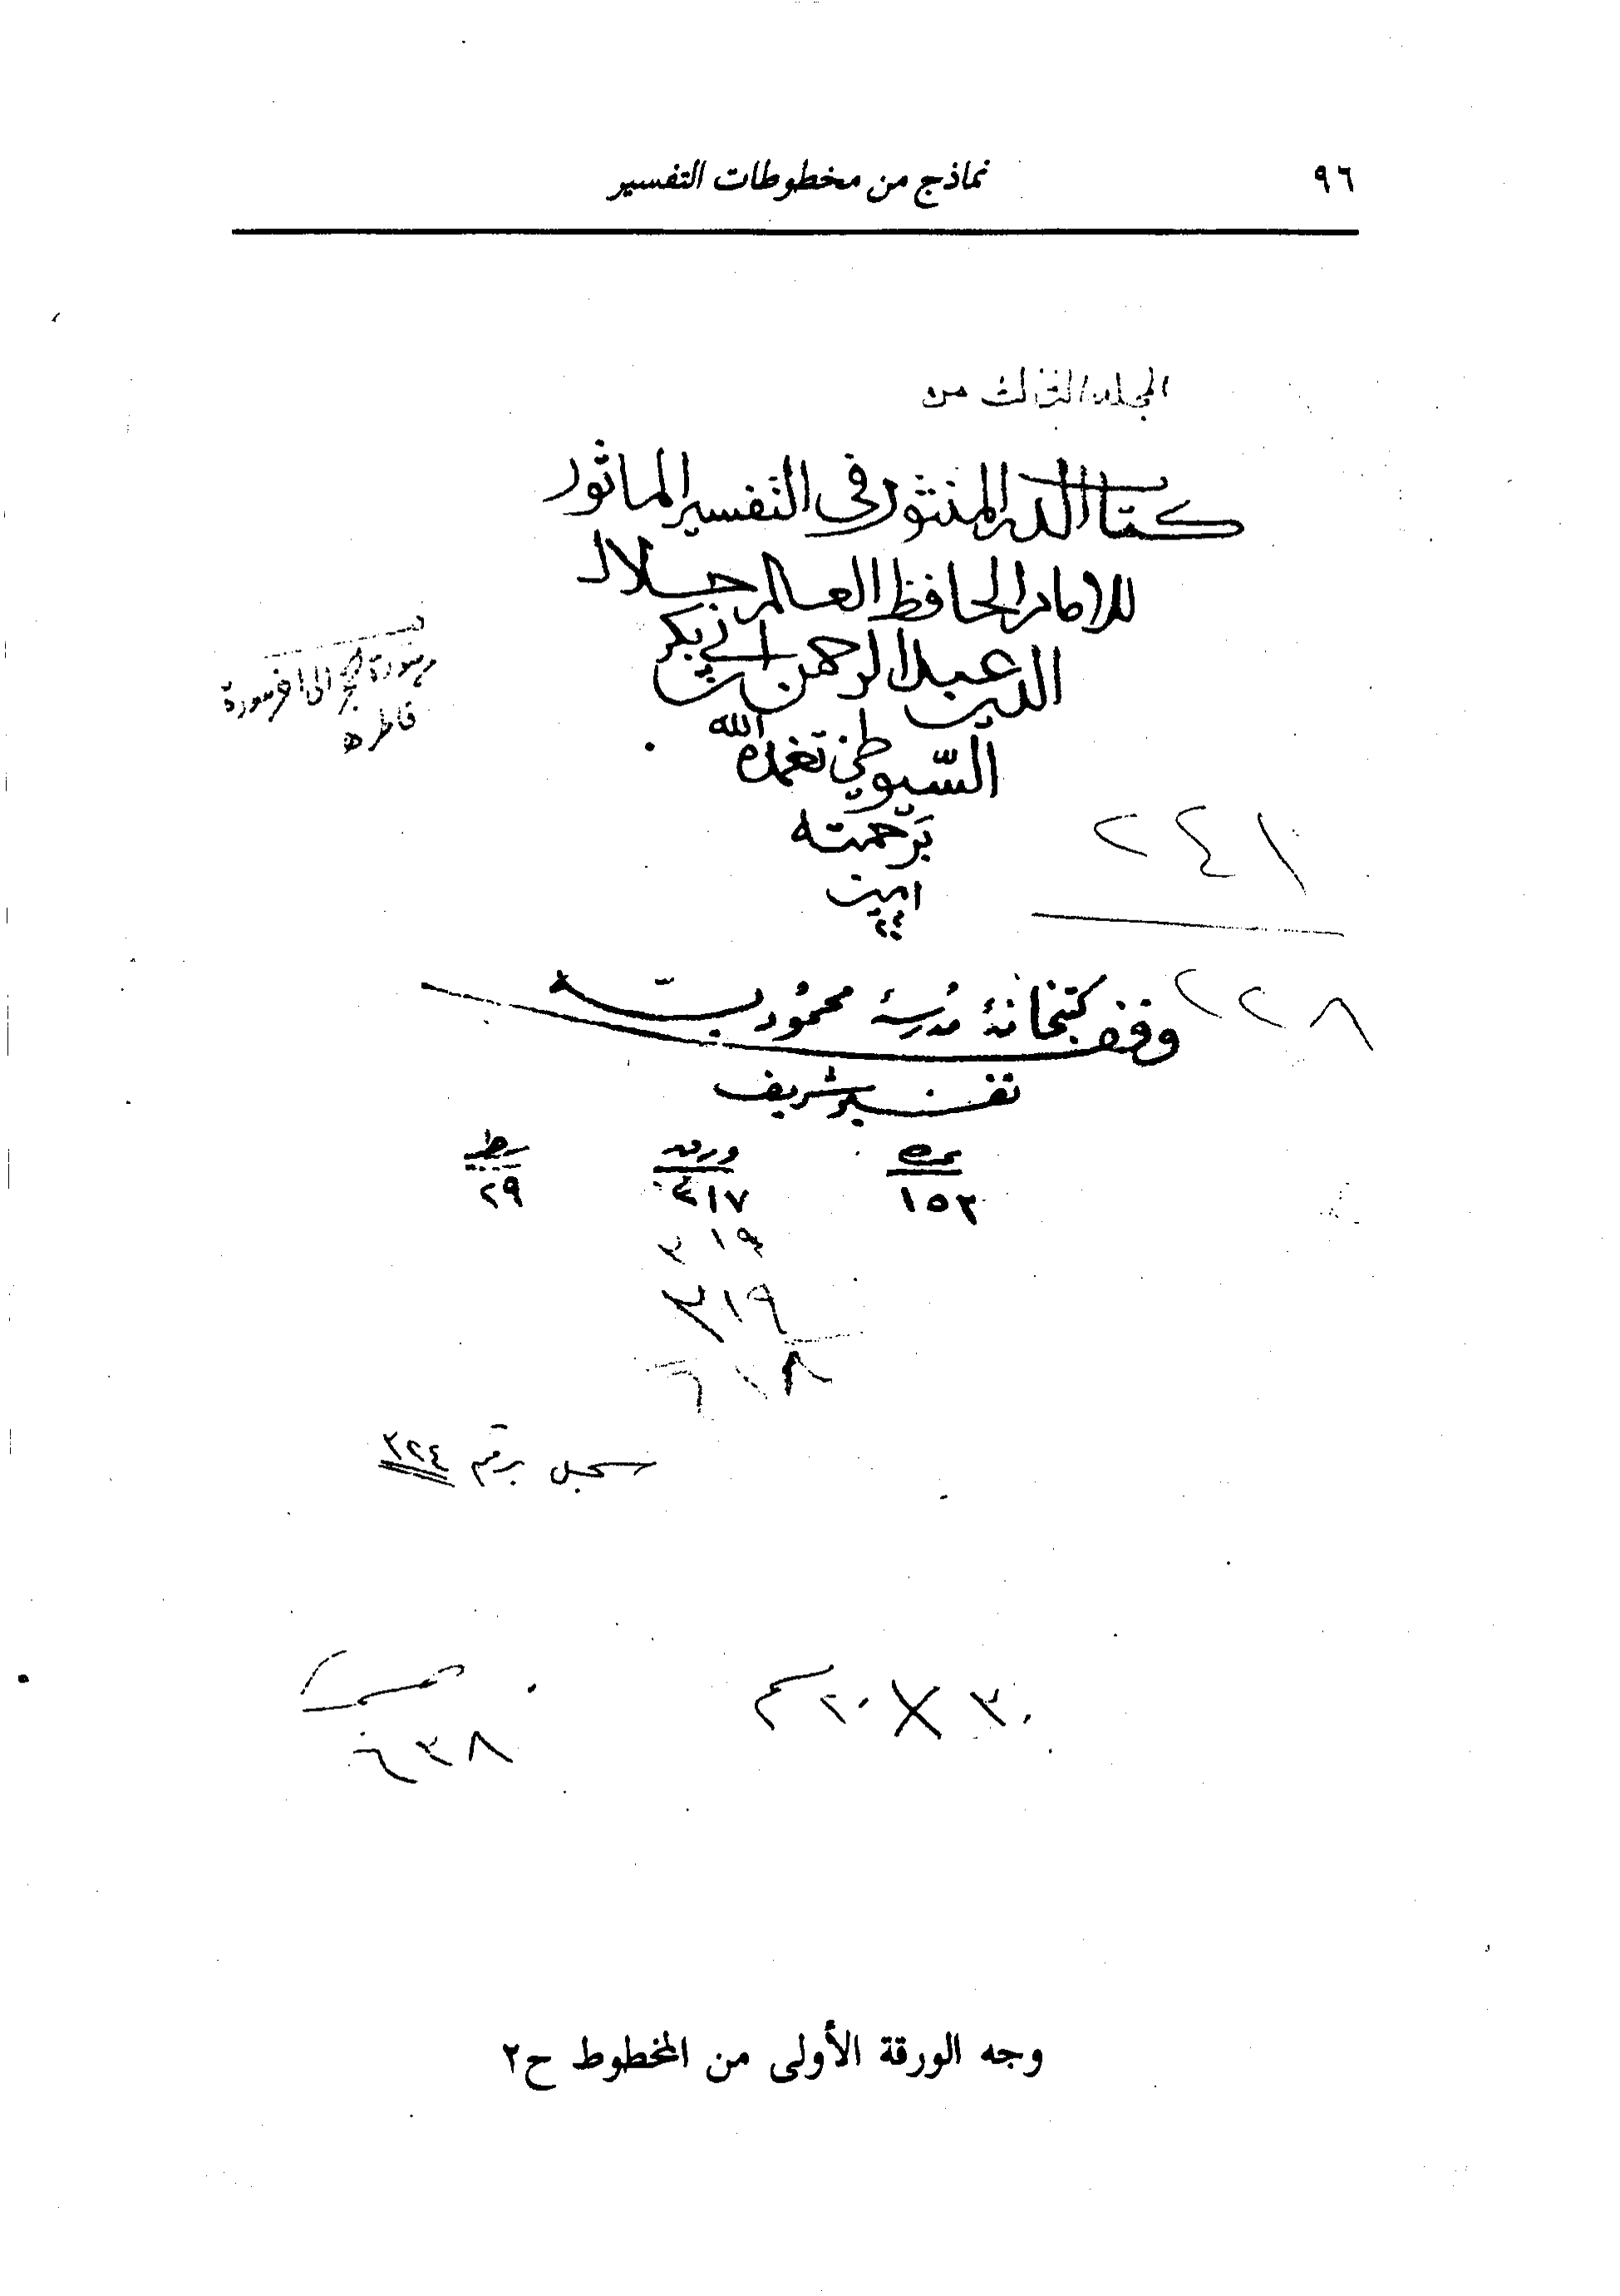 ٩٦
نماذج من مخطوطات التفسير
المجلد الثالث من
كتاب الدر المنثور في التفسير الماثور
للامام الحافظ العالم جلال
الدين عبد الرحمن ابن ابي بكر
السيوطي تغمده الله
برحمته
امين
٢٤١
الى اخر سورة
فاطر
٢٢٨
وقف كتبخانۀ مدرسۀ محموديه
تفسير شريف
ورقه
١٥٣
٤١٧
٢٩
٣١٩
٣١٩
٦١٨
سجل برقم ٣٢٤
٣٠ × ٢٠ سم
٦٣٨
وجه الورقة الأولى من المخطوط ح٢